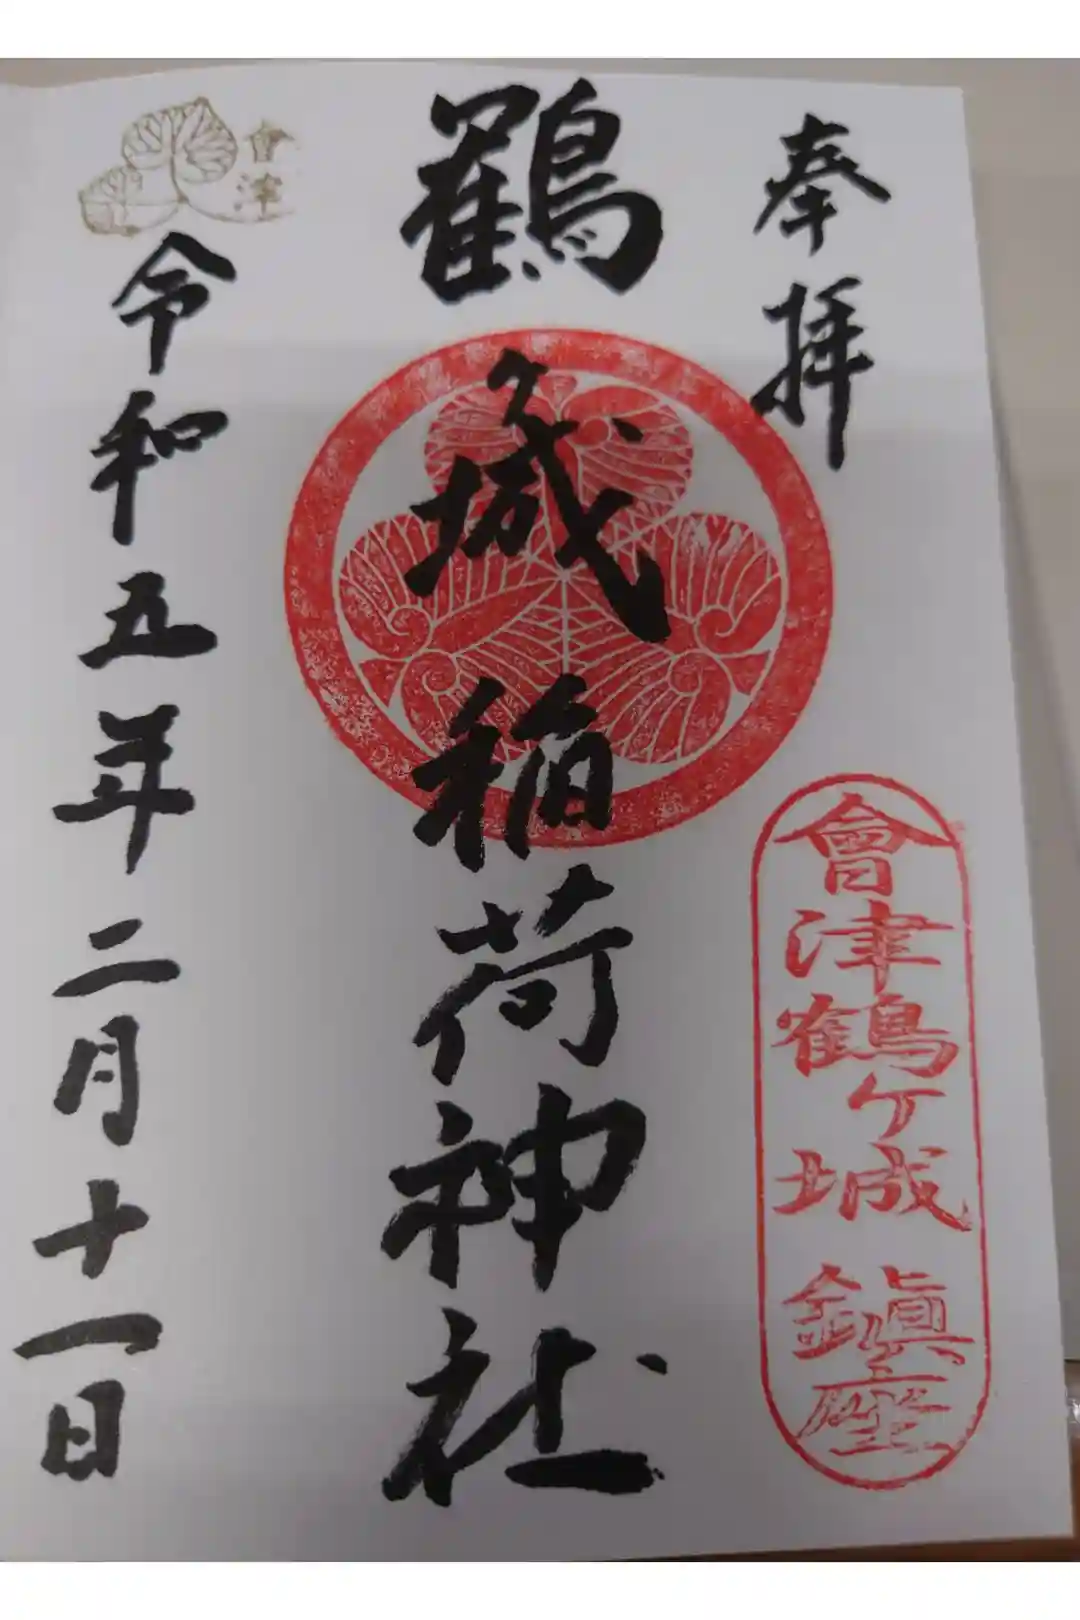 奉拝
會津鶴ヶ城 鎭座
鶴ヶ城稲荷神社
會津
令和五年二月十一日